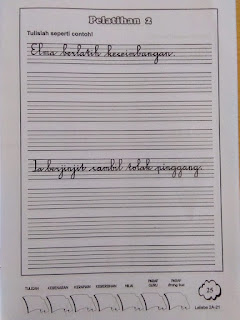 Pelatihan 2
Tulislah seperti contoh!
Elma berlatih keseimbangan.
Ia berjinjit sambil tolak pinggang.
TULISAN KEBERSIHAN NILAI PARAF GURU
25
Latihan 2A-21